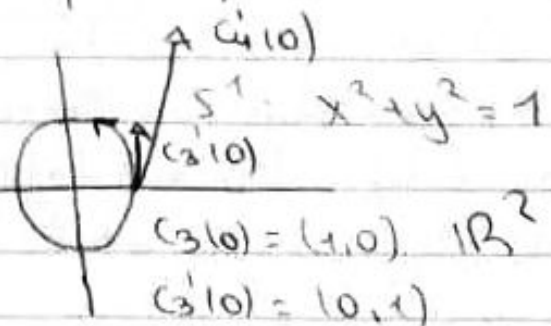 c₄'(0)
S¹: x²+y²=1
c₃'(0)
c₃(0) = (1,0). ℝ²
c₃'(0) = (0,1)